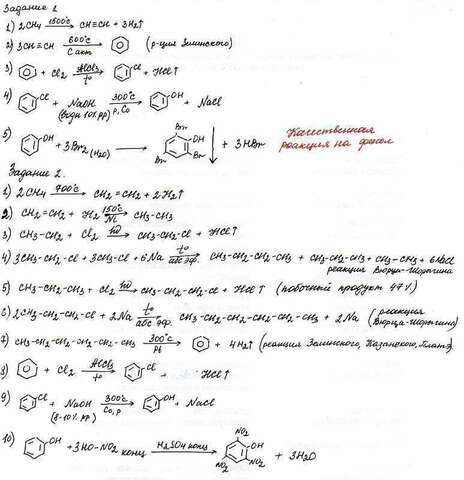 Задание 1
1) 2CH4 1500°C→ CH≡CH + 3H2↑
2) 3CH≡CH 600°C→ C акт (р-ция Зелинского)
3) + Cl2 AlCl3→ t° Cl + HCl↑
4) Cl + NaOH 300°C→ p, Co OH + NaCl
(водн 10% рр)
5) OH + 3Br2 (H2O) → Br OH Br Br ↓ + 3HBr Качественная реакция на фенол
Задание 2.
1) 2CH4 700°C→ CH2=CH2 + 2H2↑
2) CH2=CH2 + H2 150°C→ Ni CH3-CH3
3) CH3-CH3 + Cl2 hν→ CH3-CH2-Cl + HCl↑
4) 3CH3-CH2-Cl + 3CH3-Cl + 6Na t°→ абс эф. CH3-CH2-CH2-CH3 + CH3-CH2-CH3 + CH3-CH3 + 6NaCl
реакция Вюрца-Шорыгина
5) CH3-CH2-CH3 + Cl2 hν→ CH3-CH2-CH2-Cl + HCl↑ (побочный продукт 47%)
6) 2CH3-CH2-CH2-Cl + 2Na t°→ абс эф. CH3-CH2-CH2-CH2-CH2-CH3 + 2Na (реакция Вюрца-Шорыгина)
7) CH3-CH2-CH2-CH2-CH2-CH3 300°C→ Pt + 4H2↑ (реакция Зелинского, Казанского, Платэ)
8) + Cl2 AlCl3→ t° Cl + HCl↑
9) Cl + NaOH 300°C→ Co, p OH + NaCl
(8-10% рр)
10) OH + 3HO-NO2 конц H2SO4 конц→ NO2 OH NO2 NO2 + 3H2O